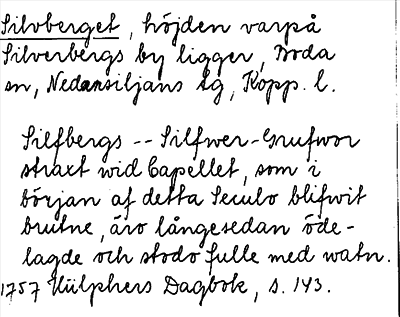 Silvberget, höjden varpå
Silverbergs by ligger, Boda
sn, Nedansiljans lg, Kopp. l.
Silfbergs -- Silfwer-Grufwor
straxt wid Capellet, som i
början af detta Seculo blifwit
brutne, äro långesedan öde-
lagde och stodo fulle med watn.
1757 Hülphers Dagbok, s. 143.